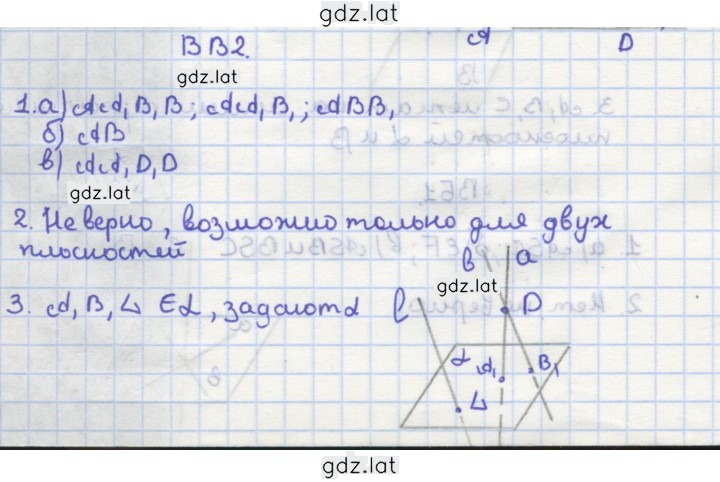 gdz.lat
ВВ2.
A
D
gdz.lat
1. а) AA₁B₁B; AA₁B₁; ABB₁
б) AB
в) AA₁D₁D
gdz.lat
2. Неверно, возможно только для двух
плоскостей
в
а
gdz.lat
3. A, B, C ∈ α, задают α
l
D
α
A₁
B₁
C
gdz.lat